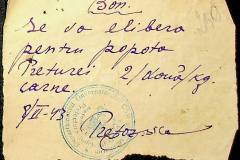 Bon.
Se va elibera
pentru popota
Preturei 2/două/kg.
carne.
8/II-43